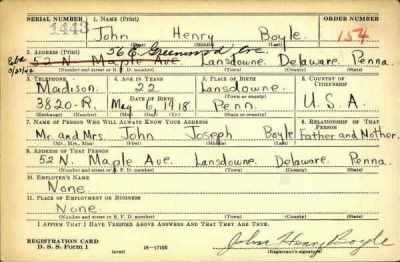 SERIAL NUMBER 1. NAME (Print) ORDER NUMBER
1443 John Henry Boyle 154
(First) (Middle) (Last)
56 E. Greenwood Ave.
2. ADDRESS (Print)
52 N. Maple Ave Lansdowne. Delaware Penna.
3/27/42
(Number and street or R. F. D. number) (Town) (County) (State)
3. TELEPHONE 4. AGE IN YEARS 5. PLACE OF BIRTH 6. COUNTRY OF CITIZENSHIP
Madison. 22 Lansdowne.
DATE OF BIRTH (Town or county)
3820-R. May 6, 1918 Penn. U.S.A.
(Exchange) (Number) (Mo.) (Day) (Yr.) (State or country)
7. NAME OF PERSON WHO WILL ALWAYS KNOW YOUR ADDRESS 8. RELATIONSHIP OF THAT PERSON
Mr. and Mrs. John Joseph Boyle Father and Mother.
(Mr., Mrs., Miss) (First) (Middle) (Last)
9. ADDRESS OF THAT PERSON
52 N. Maple Ave. Lansdowne. Delaware. Penna.
(Number and street or R. F. D. number) (Town) (County) (State)
10. EMPLOYER'S NAME
None.
11. PLACE OF EMPLOYMENT OR BUSINESS
None.
(Number and street or R. F. D. number) (Town) (County) (State)
I AFFIRM THAT I HAVE VERIFIED ABOVE ANSWERS AND THAT THEY ARE TRUE.
REGISTRATION CARD
D. S. S. Form 1 (over) 16-17105 John Henry Boyle
(Registrant's signature)